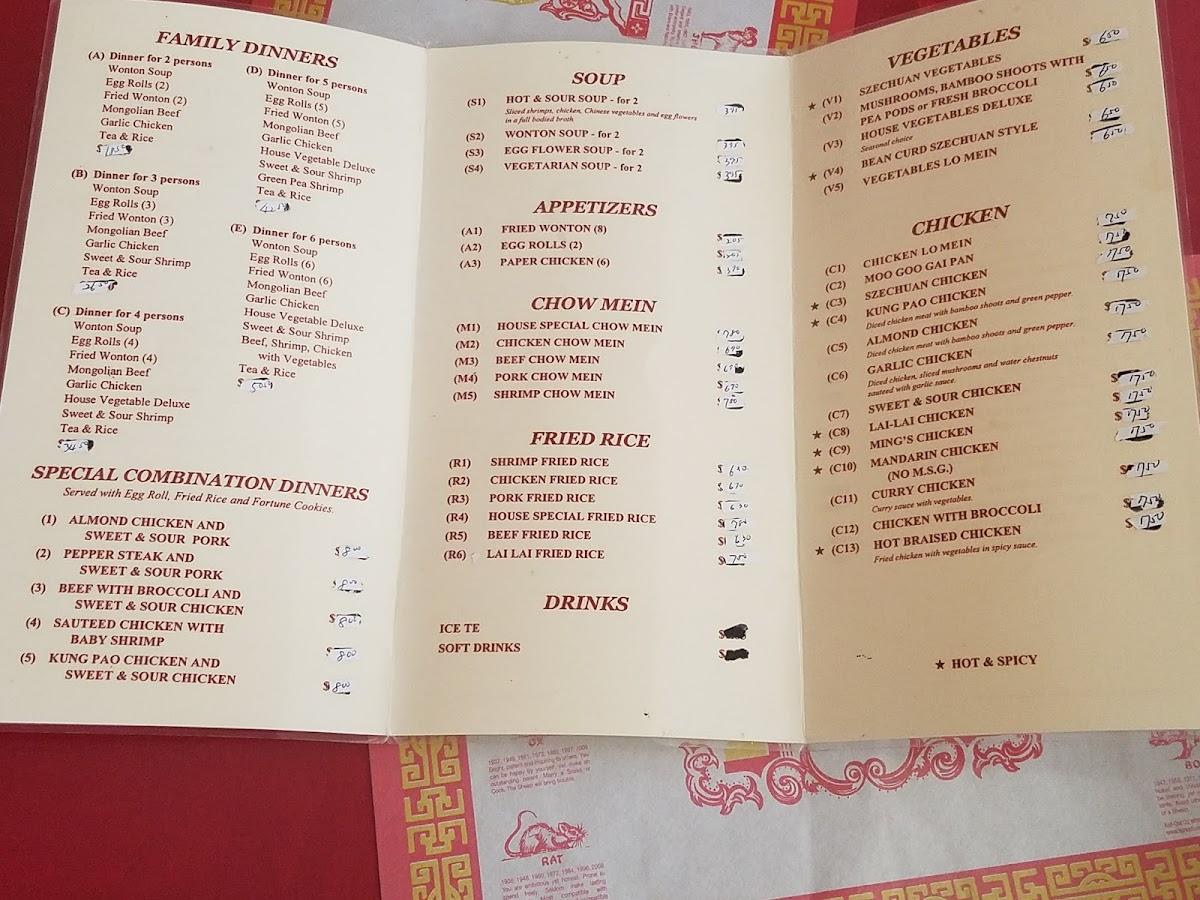 FAMILY DINNERS
(A) Dinner for 2 persons
Wonton Soup
Egg Rolls (2)
Fried Wonton (2)
Mongolian Beef
Garlic Chicken
Tea & Rice
(B) Dinner for 3 persons
Wonton Soup
Egg Rolls (3)
Fried Wonton (3)
Mongolian Beef
Garlic Chicken
Sweet & Sour Shrimp
Tea & Rice
(C) Dinner for 4 persons
Wonton Soup
Egg Rolls (4)
Fried Wonton (4)
Mongolian Beef
Garlic Chicken
House Vegetable Deluxe
Sweet & Sour Shrimp
Tea & Rice
$3450
(D) Dinner for 5 persons
Wonton Soup
Egg Rolls (5)
Fried Wonton (5)
Mongolian Beef
Garlic Chicken
House Vegetable Deluxe
Sweet & Sour Shrimp
Green Pea Shrimp
Tea & Rice
(E) Dinner for 6 persons
Wonton Soup
Egg Rolls (6)
Fried Wonton (6)
Mongolian Beef
Garlic Chicken
House Vegetable Deluxe
Sweet & Sour Shrimp
Beef, Shrimp, Chicken
with Vegetables
Tea & Rice
SPECIAL COMBINATION DINNERS
Served with Egg Roll, Fried Rice and Fortune Cookies.
(1) ALMOND CHICKEN AND
SWEET & SOUR PORK $800
(2) PEPPER STEAK AND
SWEET & SOUR PORK $800
(3) BEEF WITH BROCCOLI AND
SWEET & SOUR CHICKEN $800
(4) SAUTEED CHICKEN WITH
BABY SHRIMP $800
(5) KUNG PAO CHICKEN AND
SWEET & SOUR CHICKEN $800
SOUP
(S1) HOT & SOUR SOUP - for 2 395
Sliced shrimps, chicken, Chinese vegetables and egg flowers
in a full bodied broth
(S2) WONTON SOUP - for 2 395
(S3) EGG FLOWER SOUP - for 2 395
(S4) VEGETARIAN SOUP - for 2 $395
APPETIZERS
(A1) FRIED WONTON (8) $
(A2) EGG ROLLS (2) $
(A3) PAPER CHICKEN (6) $
CHOW MEIN
(M1) HOUSE SPECIAL CHOW MEIN
(M2) CHICKEN CHOW MEIN
(M3) BEEF CHOW MEIN
(M4) PORK CHOW MEIN
(M5) SHRIMP CHOW MEIN
FRIED RICE
(R1) SHRIMP FRIED RICE $
(R2) CHICKEN FRIED RICE $
(R3) PORK FRIED RICE $
(R4) HOUSE SPECIAL FRIED RICE $
(R5) BEEF FRIED RICE $
(R6) LAI LAI FRIED RICE $
DRINKS
ICE TE $
SOFT DRINKS $
VEGETABLES
★ (V1) SZECHUAN VEGETABLES $650
(V2) MUSHROOMS, BAMBOO SHOOTS WITH
PEA PODS or FRESH BROCCOLI $650
(V3) HOUSE VEGETABLES DELUXE $650
Seasonal choice
★ (V4) BEAN CURD SZECHUAN STYLE 650
(V5) VEGETABLES LO MEIN 650
CHICKEN
(C1) CHICKEN LO MEIN 750
(C2) MOO GOO GAI PAN 750
★ (C3) SZECHUAN CHICKEN 750
★ (C4) KUNG PAO CHICKEN 750
Diced chicken meat with bamboo shoots and green pepper.
(C5) ALMOND CHICKEN $750
Diced chicken meat with bamboo shoots and green pepper.
(C6) GARLIC CHICKEN $750
Diced chicken, sliced mushrooms and water chestnuts
sauteed with garlic sauce.
(C7) SWEET & SOUR CHICKEN $750
★ (C8) LAI-LAI CHICKEN $750
★ (C9) MING'S CHICKEN $750
★ (C10) MANDARIN CHICKEN 750
(NO M.S.G.)
(C11) CURRY CHICKEN $750
Curry sauce with vegetables.
(C12) CHICKEN WITH BROCCOLI $750
★ (C13) HOT BRAISED CHICKEN $750
Fried chicken with vegetables in spicy sauce.
★ HOT & SPICY
OX
RAT